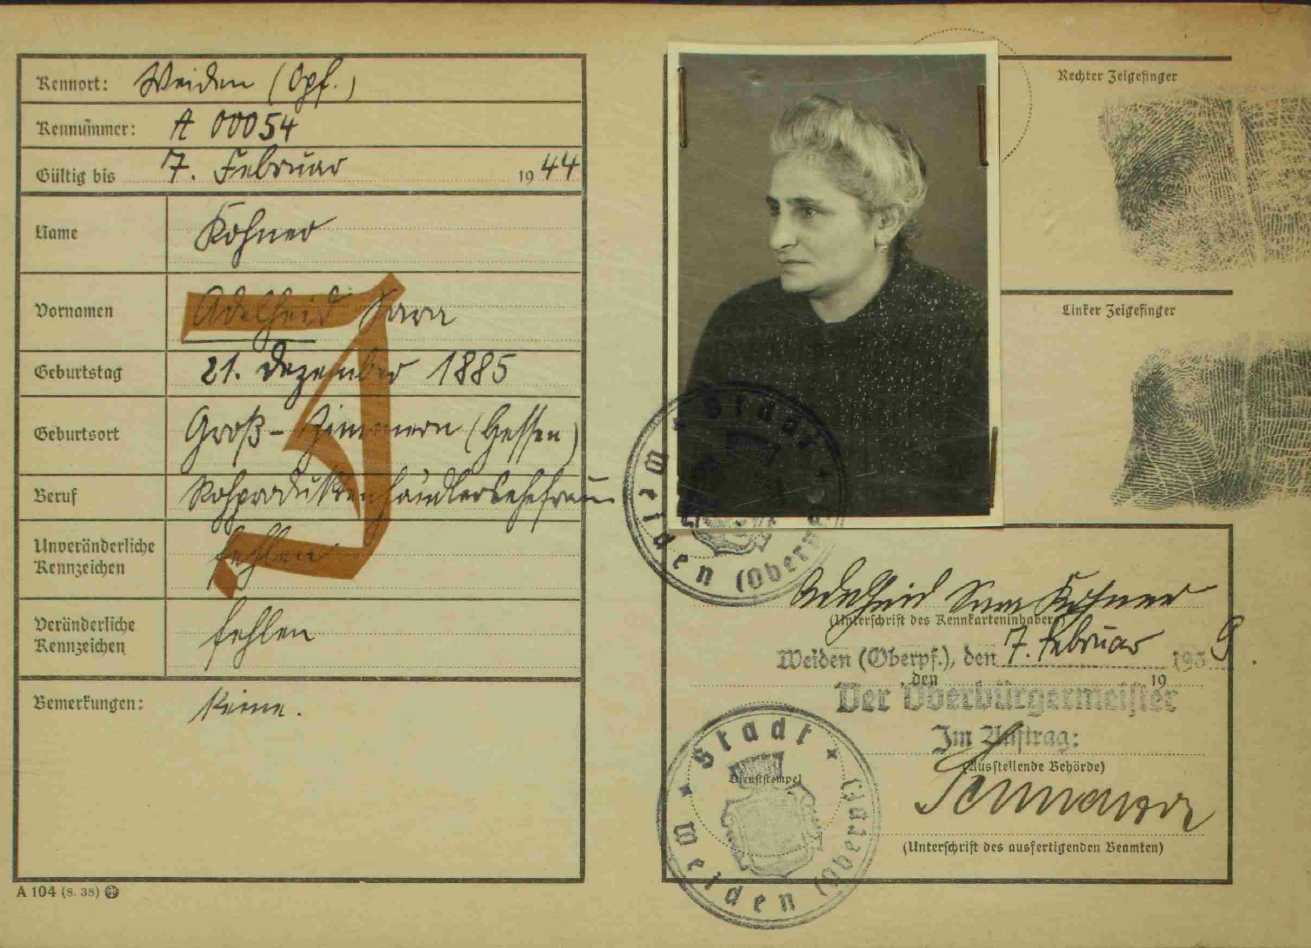 Kennort: Weiden (Opf.)
Kennummer: A 00054
Gültig bis 7. Februar 1944
Name Kohner
Vornamen Adelheid Sara
Geburtstag 21. Dezember 1885
Geburtsort Groß-Zimmern (Hessen)
Beruf Rohproduktenhändlersehefrau
Unveränderliche
Kennzeichen fehlen
Veränderliche
Kennzeichen fehlen
Bemerkungen: Keine.
J
A 104 (8. 38)
Rechter Zeigefinger
Linker Zeigefinger
Stadt Weiden (Oberpf.)
Adelheid Sara Kohner
(Unterschrift des Kennkarteninhabers)
Weiden (Oberpf.), den 7. Februar 1939.
, den 19
Der Oberbürgermeister
Im Auftrag:
(Ausstellende Behörde)
(Unterschrift des ausfertigenden Beamten)
Stadt Weiden (Oberpf.)
Dienststempel